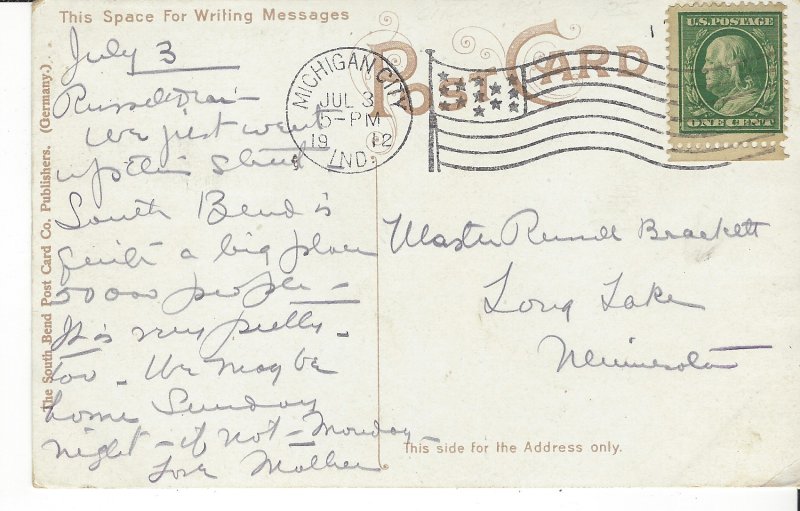 This Space For Writing Messages
POST CARD
U.S. POSTAGE
ONE CENT
MICHIGAN CITY
JUL 3
5-PM
1912
IND.
The South Bend Post Card Co. Publishers. (Germany.)
July 3
Russell dear-
We just went
up this street
South Bend is
quite a big place
50000 people -
It is very pretty -
too - We may be
home Sunday
night - if not - Monday -
Love Mother
Master Russell Brackett
Long Lake
Minnesota
This side for the Address only.